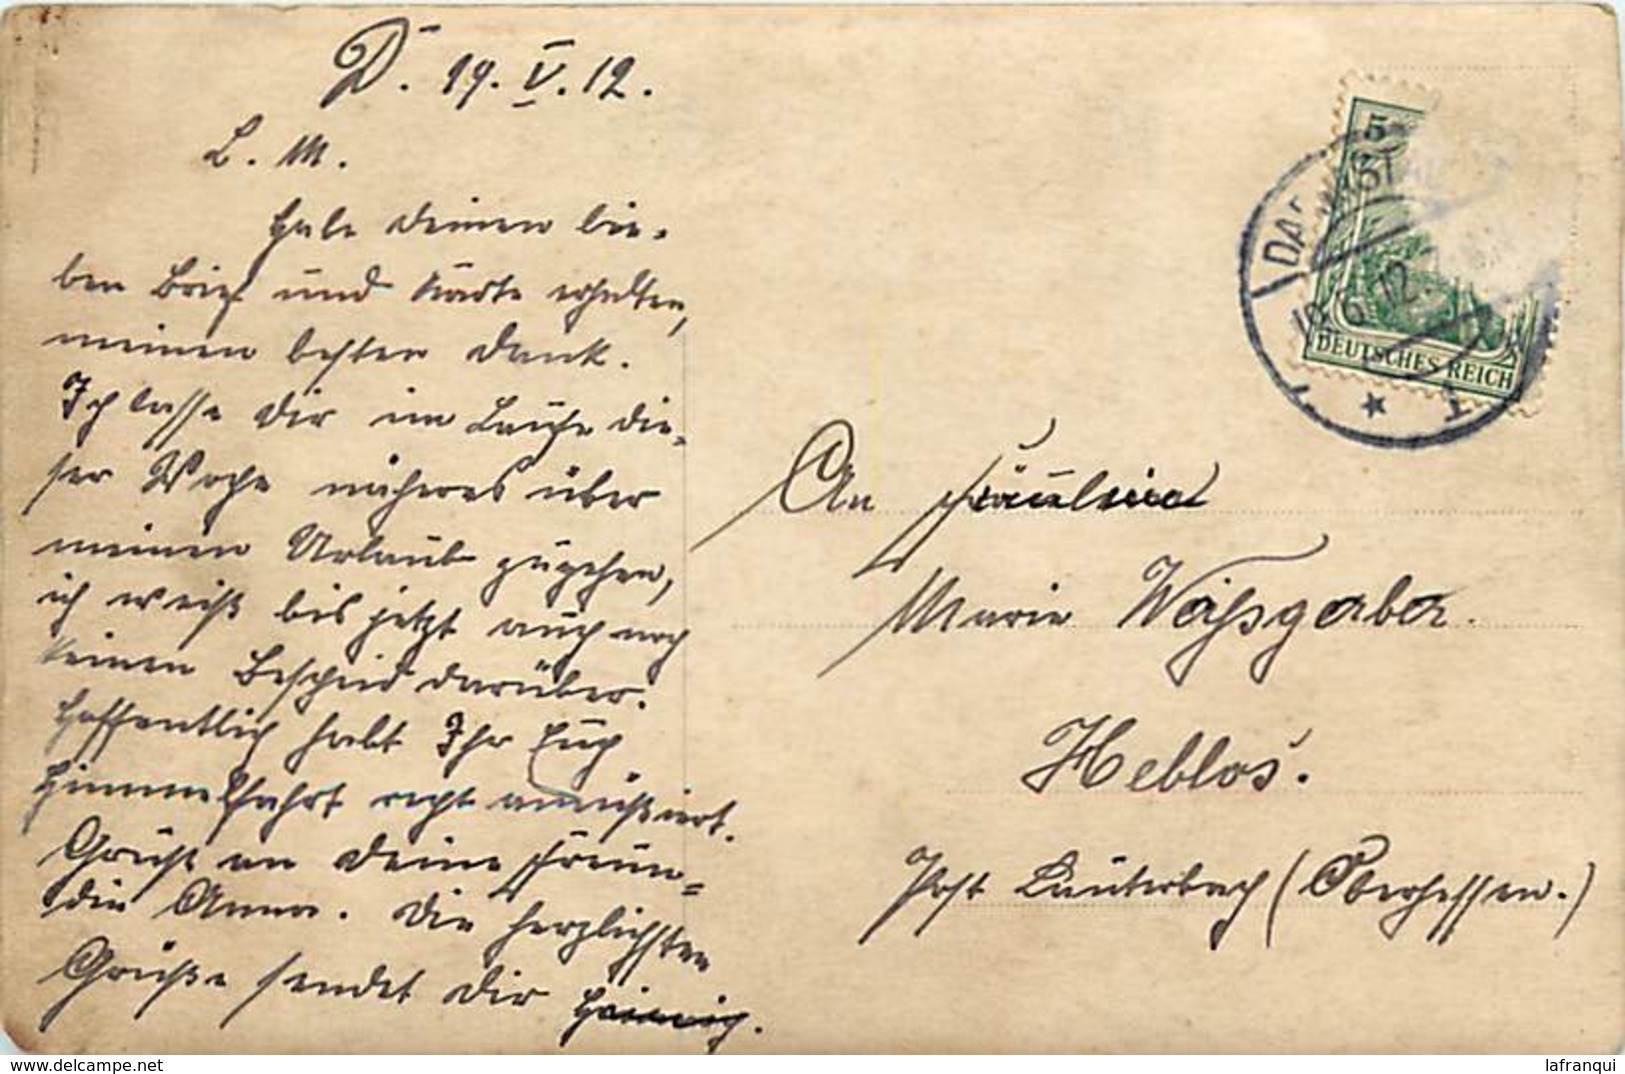 D. 19. V. 12.
L. M.
Habe deinen lie-
ben Brief und Karte erhalten,
meinen besten Dank.
Ich lasse dir im Laufe die-
ser Woche näheres über
meinen Urlaub zugehen,
ich weiß bis jetzt auch noch
keinen Bescheid darüber.
Hoffentlich habt Ihr Euch
Himmelfahrt recht amüsiert.
Grüße an deine Freun-
din Anna. Die herzlichsten
Grüße sendet dir Heinrich.
5
DEUTSCHES REICH
An Fräulein
Marie Weißgerber.
Heblos.
Post Lauterbach (Oberhessen.)
delcampe.net
lafranqui